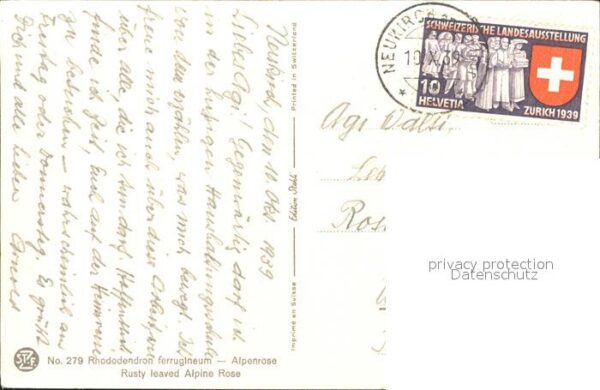 Neukirch, den 10. Okt. 1939
Liebes Agi! Gegenwärtig darf ich
in der hiesigen Haushaltungsschule
von dem erzählen, was mich bewegt. Ich
freue mich auch über diese Arbeit und
über alle die ich tun darf. Hoffentlich
finde ich Zeit, Euch auf der Heimreise
zu besuchen – wahrscheinlich am
Freitag oder Donnerstag. Es grüßt
Dich und alle Lieben Arnold
No. 279 Rhododendron ferrugineum — Alpenrose
Rusty leaved Alpine Rose
Imprimé en Suisse
Edition Stehli
Printed in Switzerland
NEUKIRCH
10.X.39
SCHWEIZERISCHE LANDESAUSSTELLUNG
10
HELVETIA
ZURICH 1939
Agi
Ros
privacy protection
Datenschutz